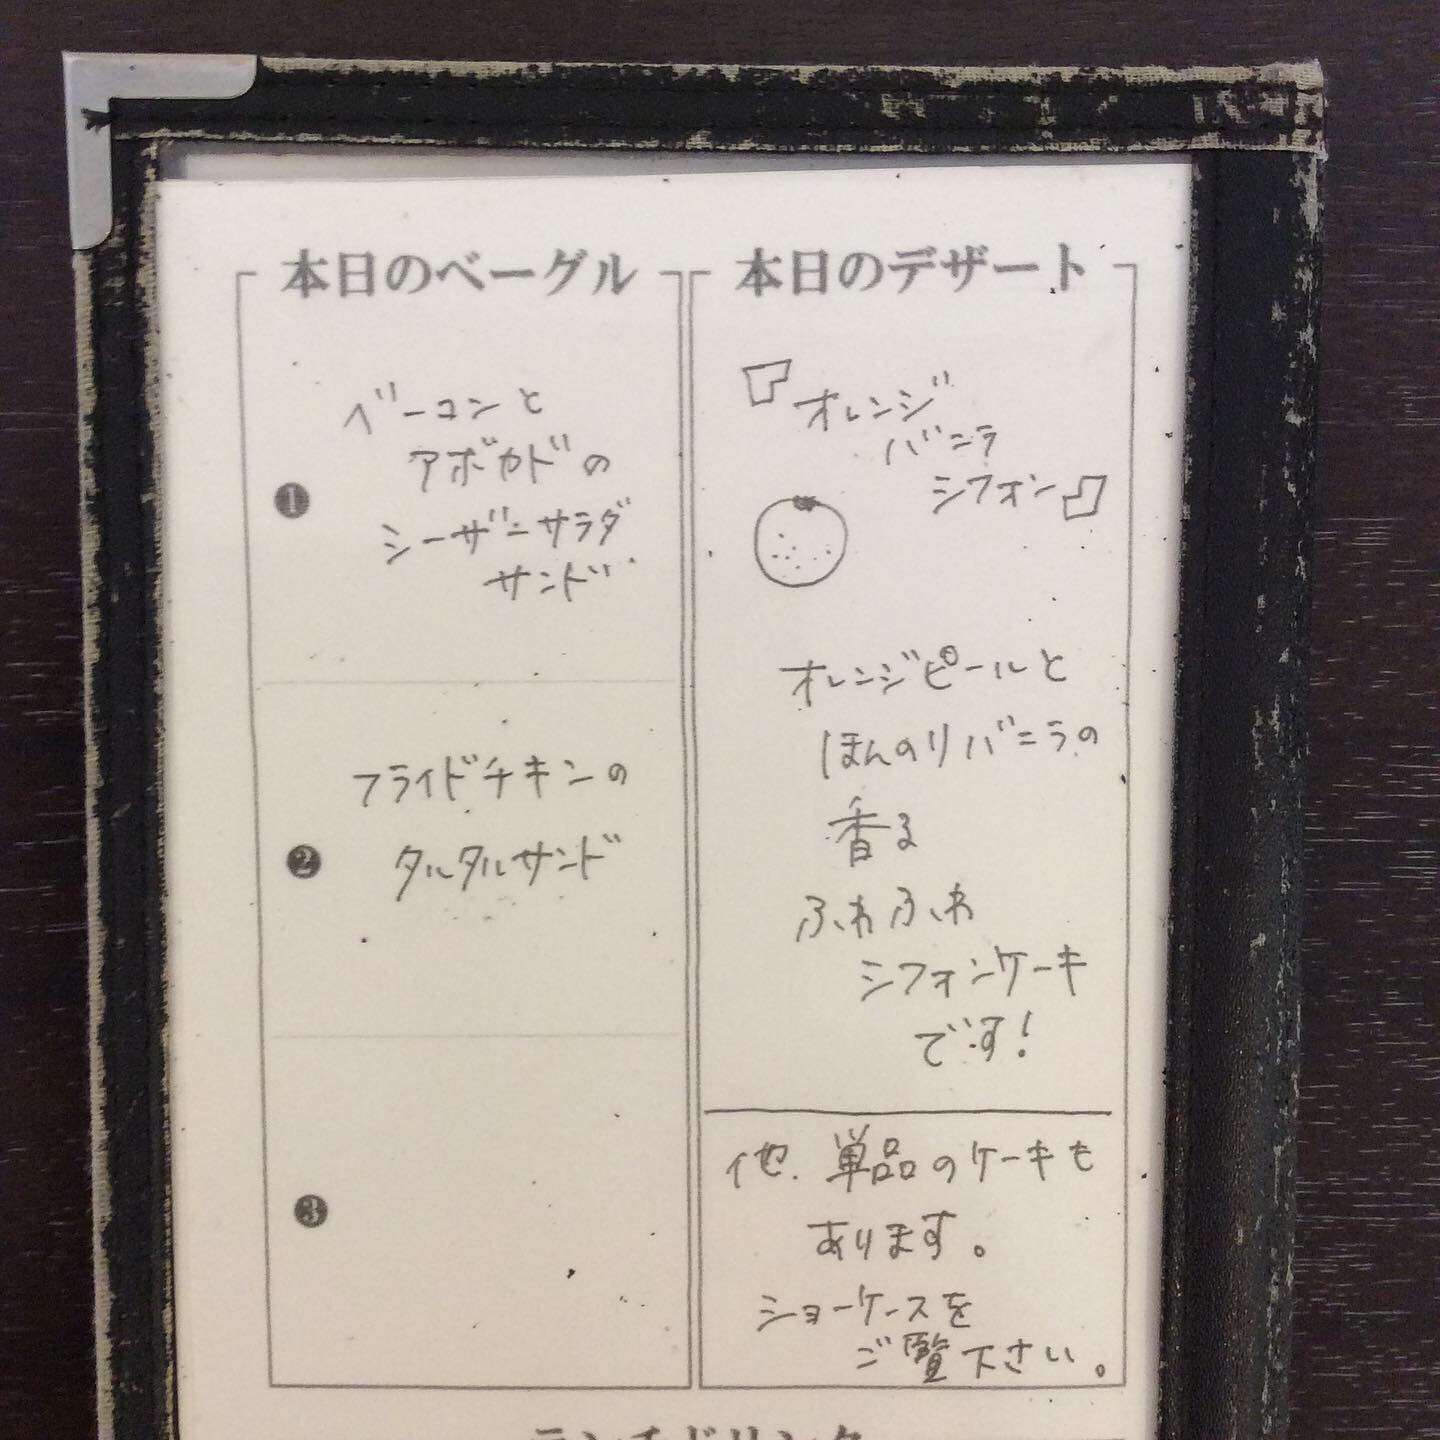 本日のベーグル
❶
ベーコンと
アボカドの
シーザーサラダ
サンド
❷
フライドチキンの
タルタルサンド
❸
本日のデザート
『オレンジ
バニラ
シフォン』
オレンジピールと
ほんのりバニラの
香る
ふわふわ
シフォンケーキ
です!
他、単品のケーキも
あります。
ショーケースを
ご覧下さい。
ランチドリンク